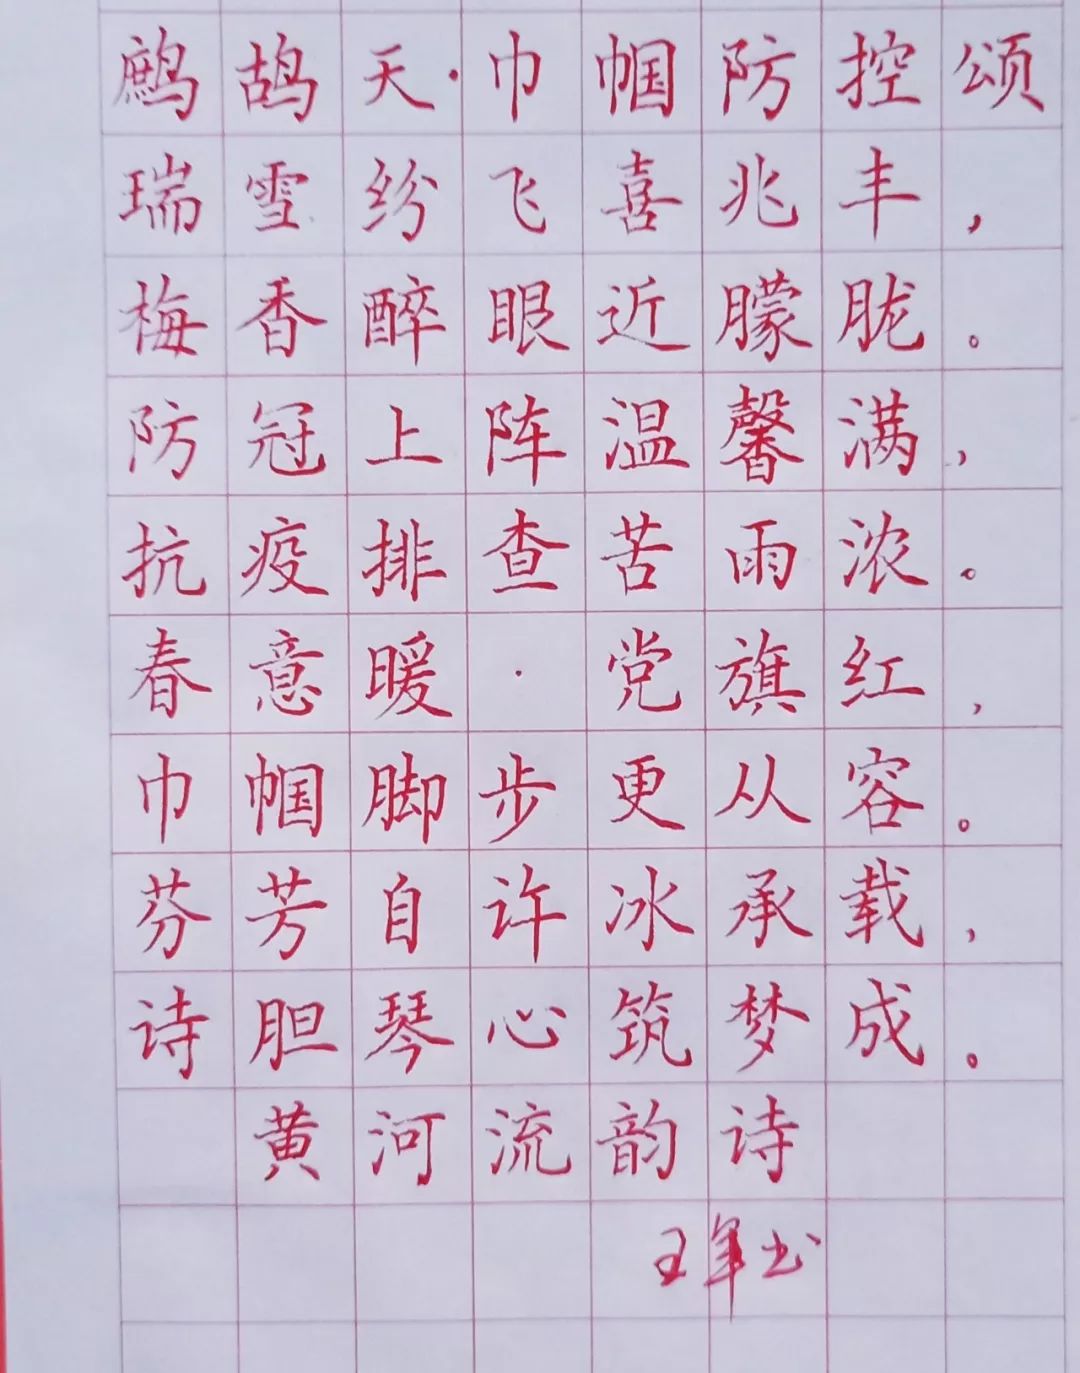 鹧鸪天·巾帼防控颂
瑞雪纷飞喜兆丰，
梅香醉眼近朦胧。
防冠上阵温馨满，
抗疫排查苦雨浓。
春意暖·党旗红，
巾帼脚步更从容。
芬芳自许冰承载，
诗胆琴心筑梦成。
黄河流韵诗
王军书